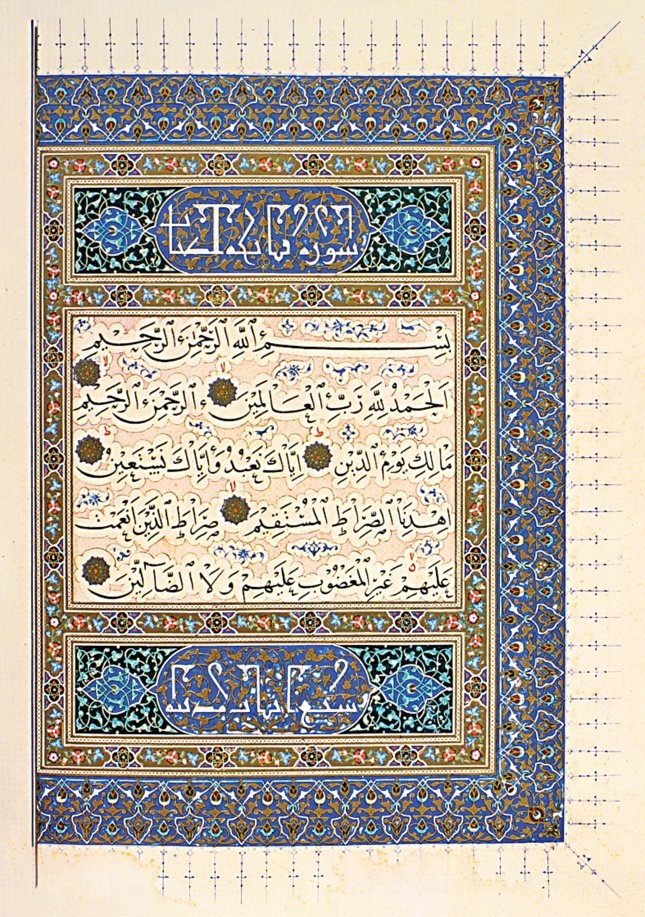 سورة فاتحة الكتاب
بِسْمِ ٱللَّهِ ٱلرَّحْمَٰنِ ٱلرَّحِيمِ
اَلْحَمْدُ لِلَّهِ رَبِّ ٱلْعَالَمِينَ ٱلرَّحْمَٰنِ ٱلرَّحِيمِ
مَالِكِ يَوْمِ ٱلدِّينِ اِيَّاكَ نَعْبُدُ وَاِيَّاكَ نَسْتَعِينُ
اِهْدِنَا ٱلصِّرَاطَ ٱلْمُسْتَقِيمَ صِرَاطَ ٱلَّذِينَ اَنْعَمْتَ
عَلَيْهِمْ غَيْرِ ٱلْمَغْضُوبِ عَلَيْهِمْ وَلَا ٱلضَّالِّينَ
سبع